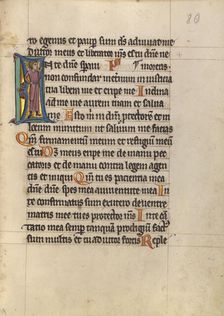 80
egenus et paup sum ds adiuua me
meus et liberator
te dne spaui moreris
non confundar in eternum in iusticia
tua libera me et eripe me Inclina
ad me aurem tuam et salua
me Esto m in dm protectorem et in
locum munitum ut saluum me facias
Qm firmamentum meum et refugium meum
es tu Ds meus eripe me de manu pec
catoris et de manu contra legem agen
tis et iniqui Qm tu es paciencia mea
dne dne spes mea a iuuentute mea In
te confirmatus sum ex utero de uentre
matris mee tu es protector m In te can
tatio mea semp tanquam prodigium fact
sum multis et tu adiutor fortis Reple